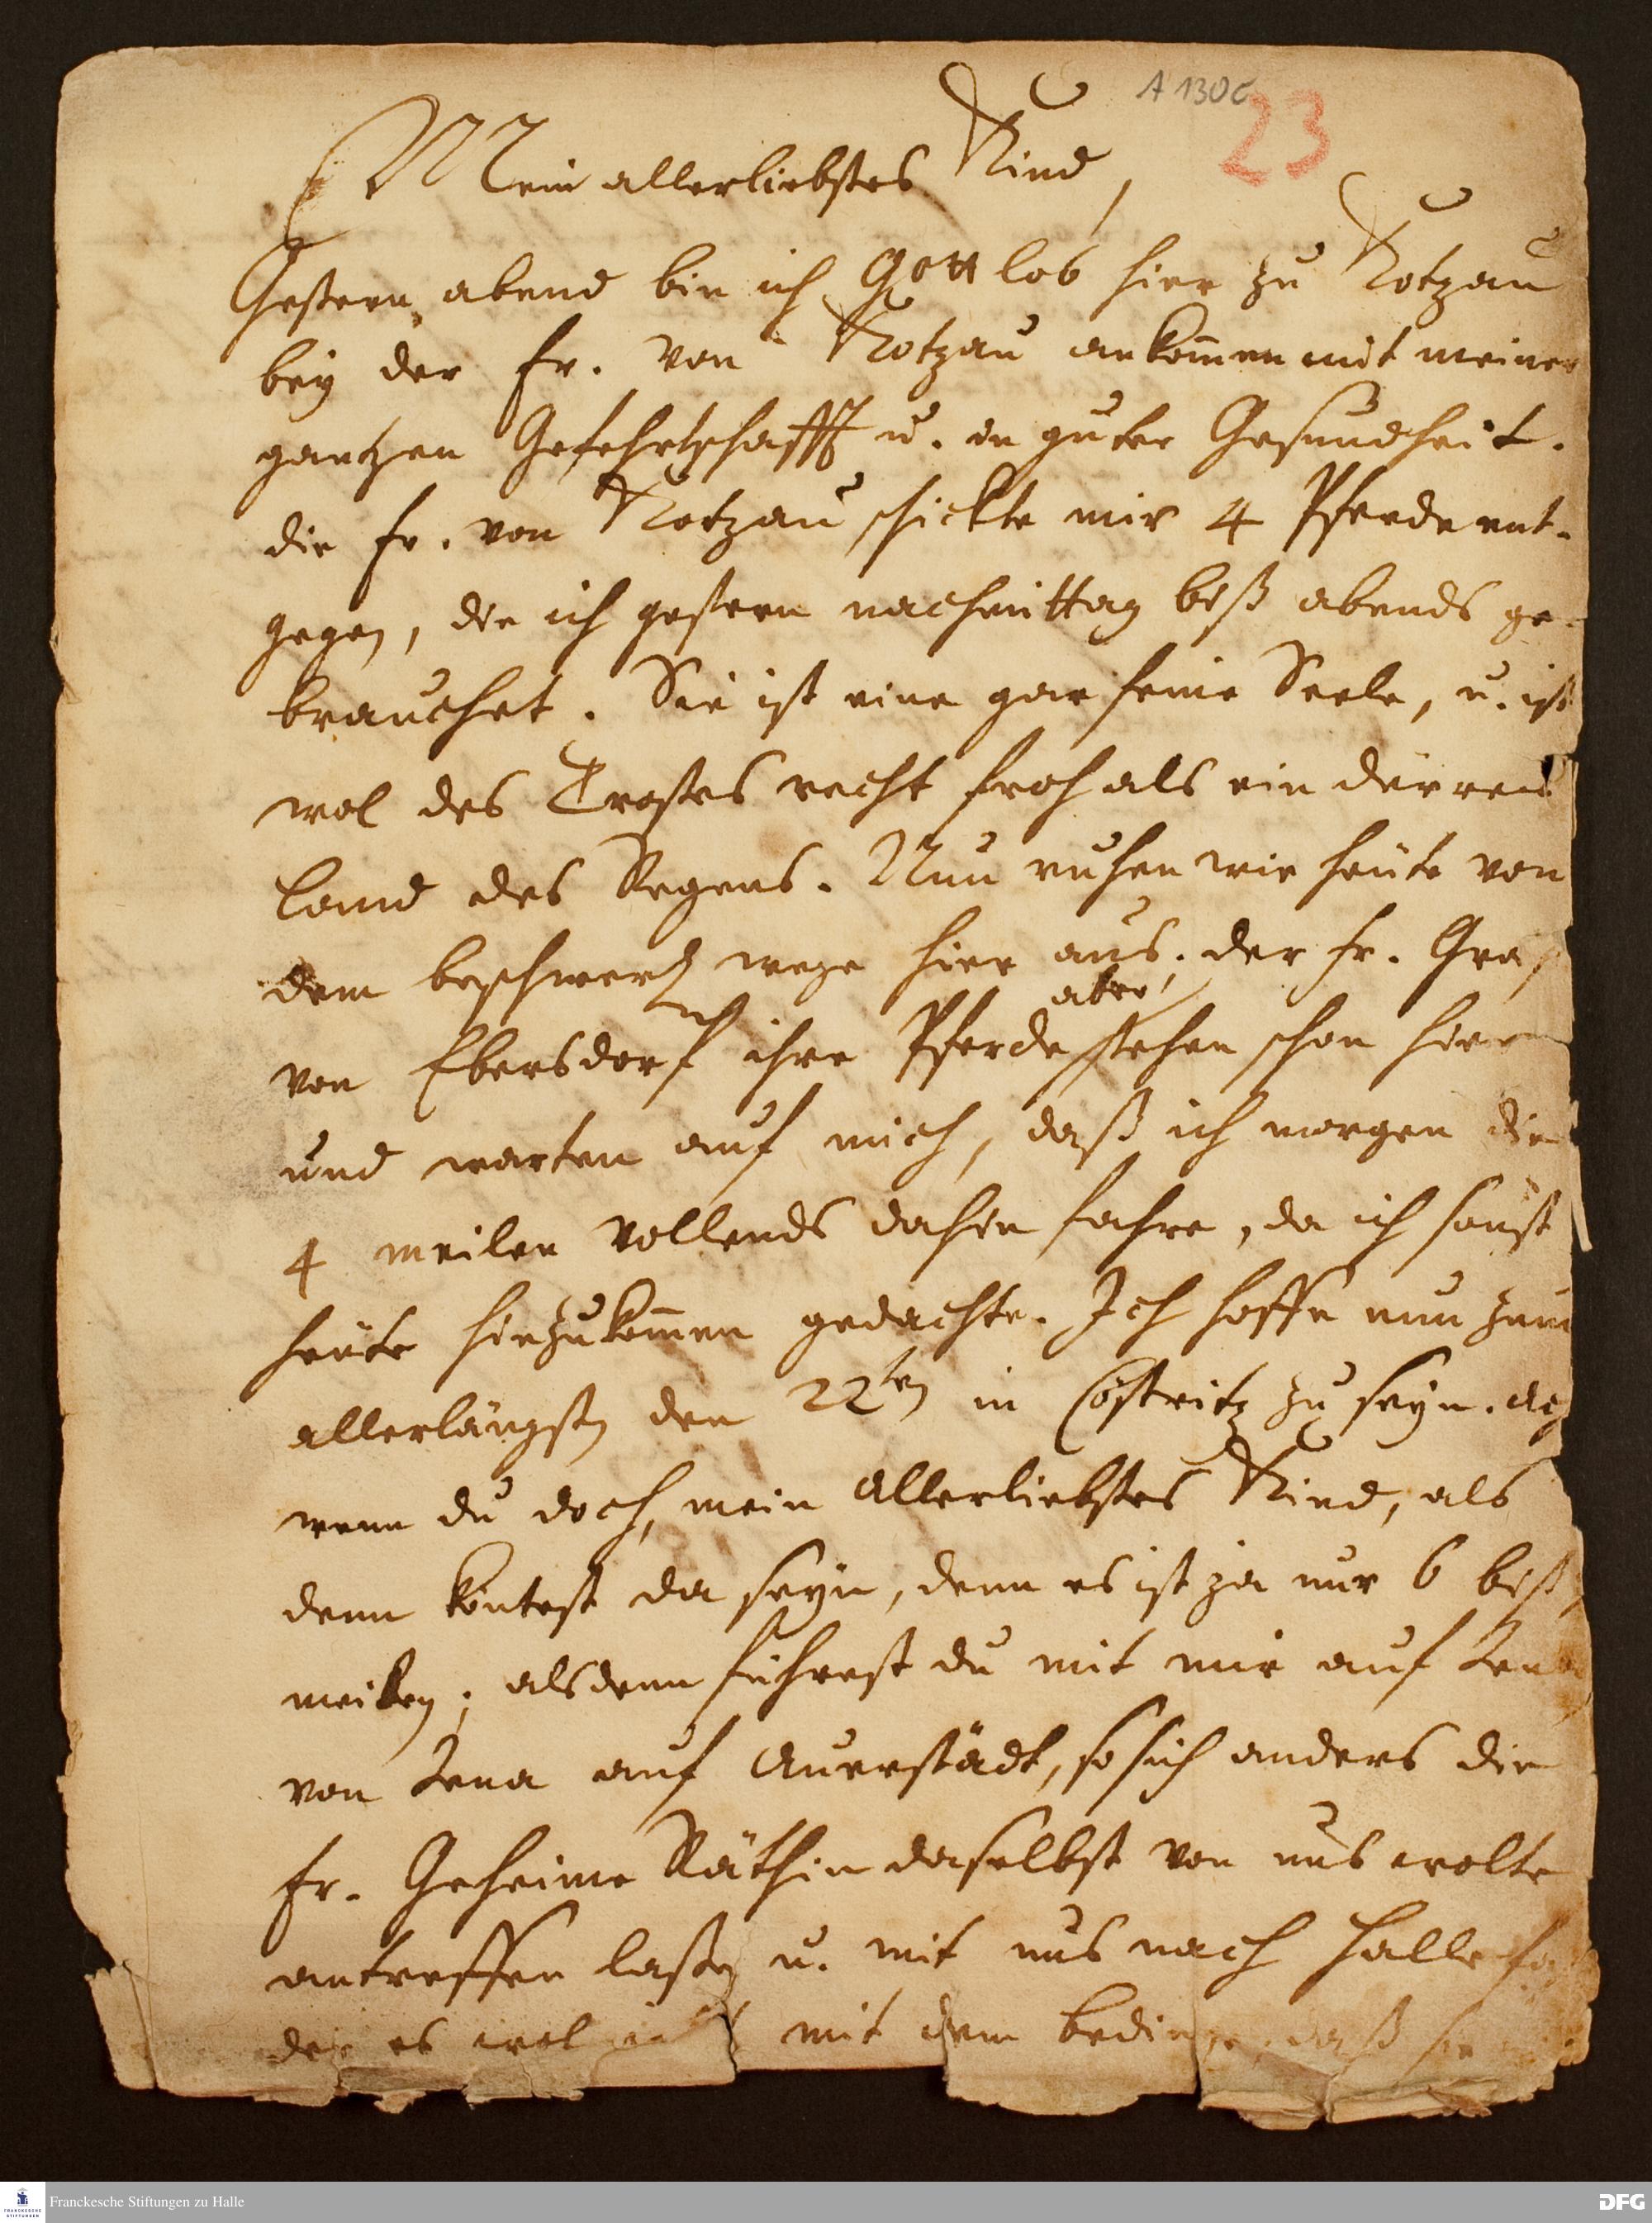 A 130c
23
Mein allerliebstes Kind,
Gestern abend bin ich Gott lob hier zu Kotzau
bey der Fr. von Kotzau ankom̄en mit meiner
gantzen Gefehrtschafft u. in guter Gesundheit.
die Fr. von Kotzau schickte mir 4 Pferde ent-
gegen, die ich gestern nachmittag biß abends ge-
brauchet. Sie ist eine gar feine Seele, u. ist
wol des Trostes recht froh als ein dürres
Land des Regens. Nun ruhen wir heute von
dem beschwerl. wege hier aus. der Fr. Gräf
aber
von Ebersdorf ihre Pferde stehen schon hier
und warten auf mich, daß ich morgen die
4 meilen vollends dahin fahre, da ich sonst
heute hinzukom̄en gedachte. Ich hoffe nun zum
allerlängsten den 22ten in Cöstritz zu seyn. ach
wenn du doch, mein allerliebstes Kind, als
denn köntest da seyn, denn es ist ja nur 6 biß
meilen; alsdenn führest du mit mir auf Jena
von Jena auf Auerstädt, so sich anders die
Fr. Geheime Räthin daselbst von uns wolte
antreffen laßen u. mit uns nach Halle
es wol mit dem bedinge, daß sie
Franckesche Stiftungen zu Halle
FRANCKESCHE STIFTUNGEN
DFG